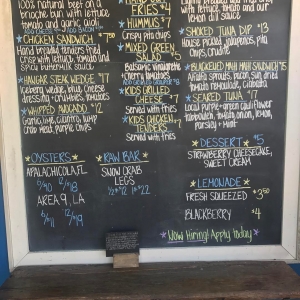 100% natural beef on a
brioche bun with lettuce
tomato and garlic aioli
CHICKEN SANDWICH $9
Hand breaded tenders fried
crisp with lettuce, tomato and
spicy buttermilk sauce
HANGAR STEAK WEDGE $17
Iceberg wedge, blue cheese
dressing, croutons, tomatoes
WHIPPED AVOCADO $12
Garlic, lime, cilantro, lump
crab meat, purple chips
OYSTERS
APALACHICOLA, FL
6/10 12/18
AREA 9, LA
6/11 12/19
FRIES $
HUMMUS $7
Crispy pita chips
MIXED GREEN
Balsamic vinaigrette
cherry tomatoes
KIDS GRILLED
CHEESE $7
Served with fries
KIDS CHICKEN
TENDERS
Served with fries
RAW BAR
SNOW CRAB
LEGS
½ $12 1# $22
lettuce and our
lemon dill sauce
SMOKED TUNA DIP $13
House pickled jalapenos, pita
chips, crudites
BLACKENED MAHI MAHI SANDWICH $15
Alfalfa sprouts, bacon, sun dried
tomato remoulade, ciabatta
SEARED TUNA $17
Local purple + green cauliflower
tomato, onion, lemon,
parsley + mint
DESSERT $5
STRAWBERRY CHEESECAKE,
SWEET CREAM
LEMONADE
FRESH SQUEEZED $3.50
BLACKBERRY $4
Now Hiring! Apply today